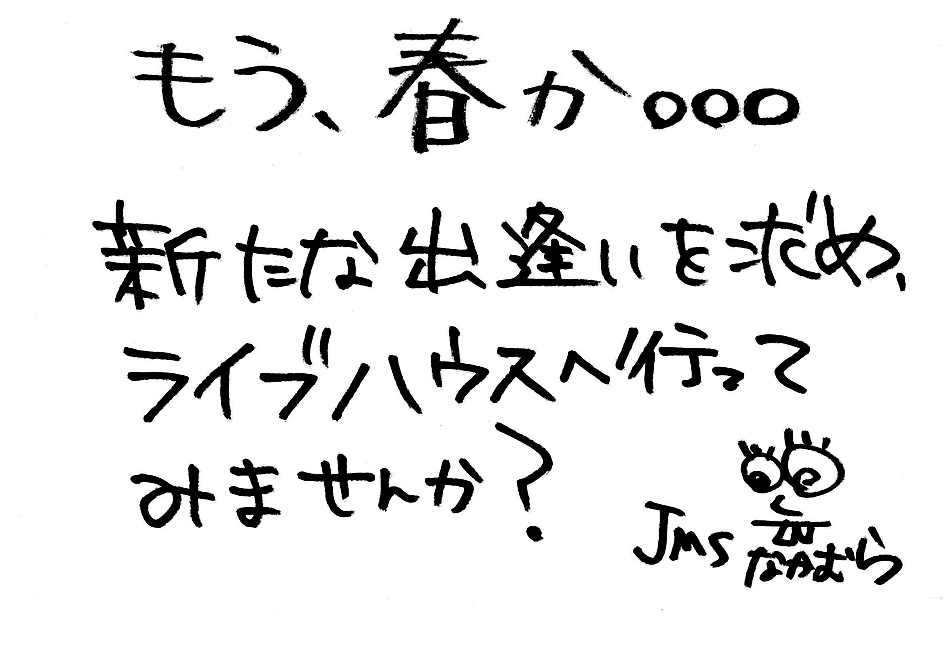 もう、春か。。。
新たな出逢いを求め、
ライブハウスへ行って
みませんか?
JMS なかむら